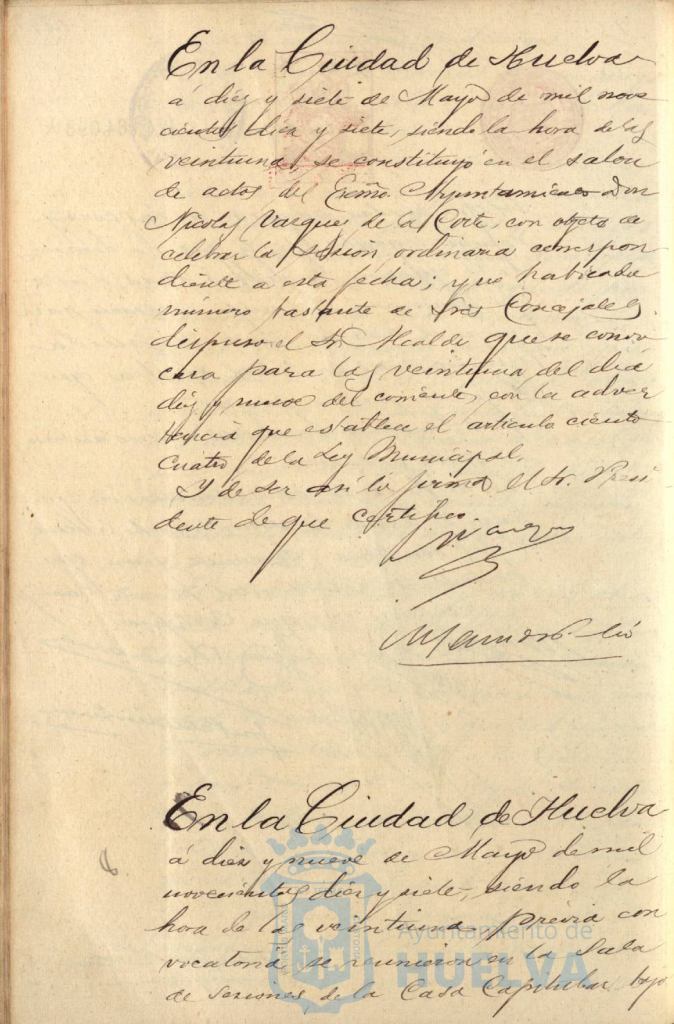 En la Ciudad de Huelva
á diez y siete de Mayo de mil nove
cientos diez y siete, siendo la hora de las
veintiuna, se constituyó en el salon
de actos del Excmo. Ayuntamiento Don
Nicolas Vazquez de la Corte, con objeto de
celebrar la sesión ordinaria correspon
diente a esta fecha; y no habiendo
número bastante de Sres Concejales,
dispuso el Sr. Alcalde que se convo
cara para las veintiuna del día
diez y nueve del corriente, con la adver
tencia que establece el articulo ciento
cuatro de la Ley Municipal.
Y de ser así lo firma el Sr. Presi
dente de que certifico.
En la Ciudad de Huelva
á diez y nueve de Mayo de mil
novecientos diez y siete, siendo la
hora de las veintiuna previa con
vocatoria se reunieron en la Sala
de Sesiones de la Casa Capitular bajo
Ayuntamiento de
HUELVA